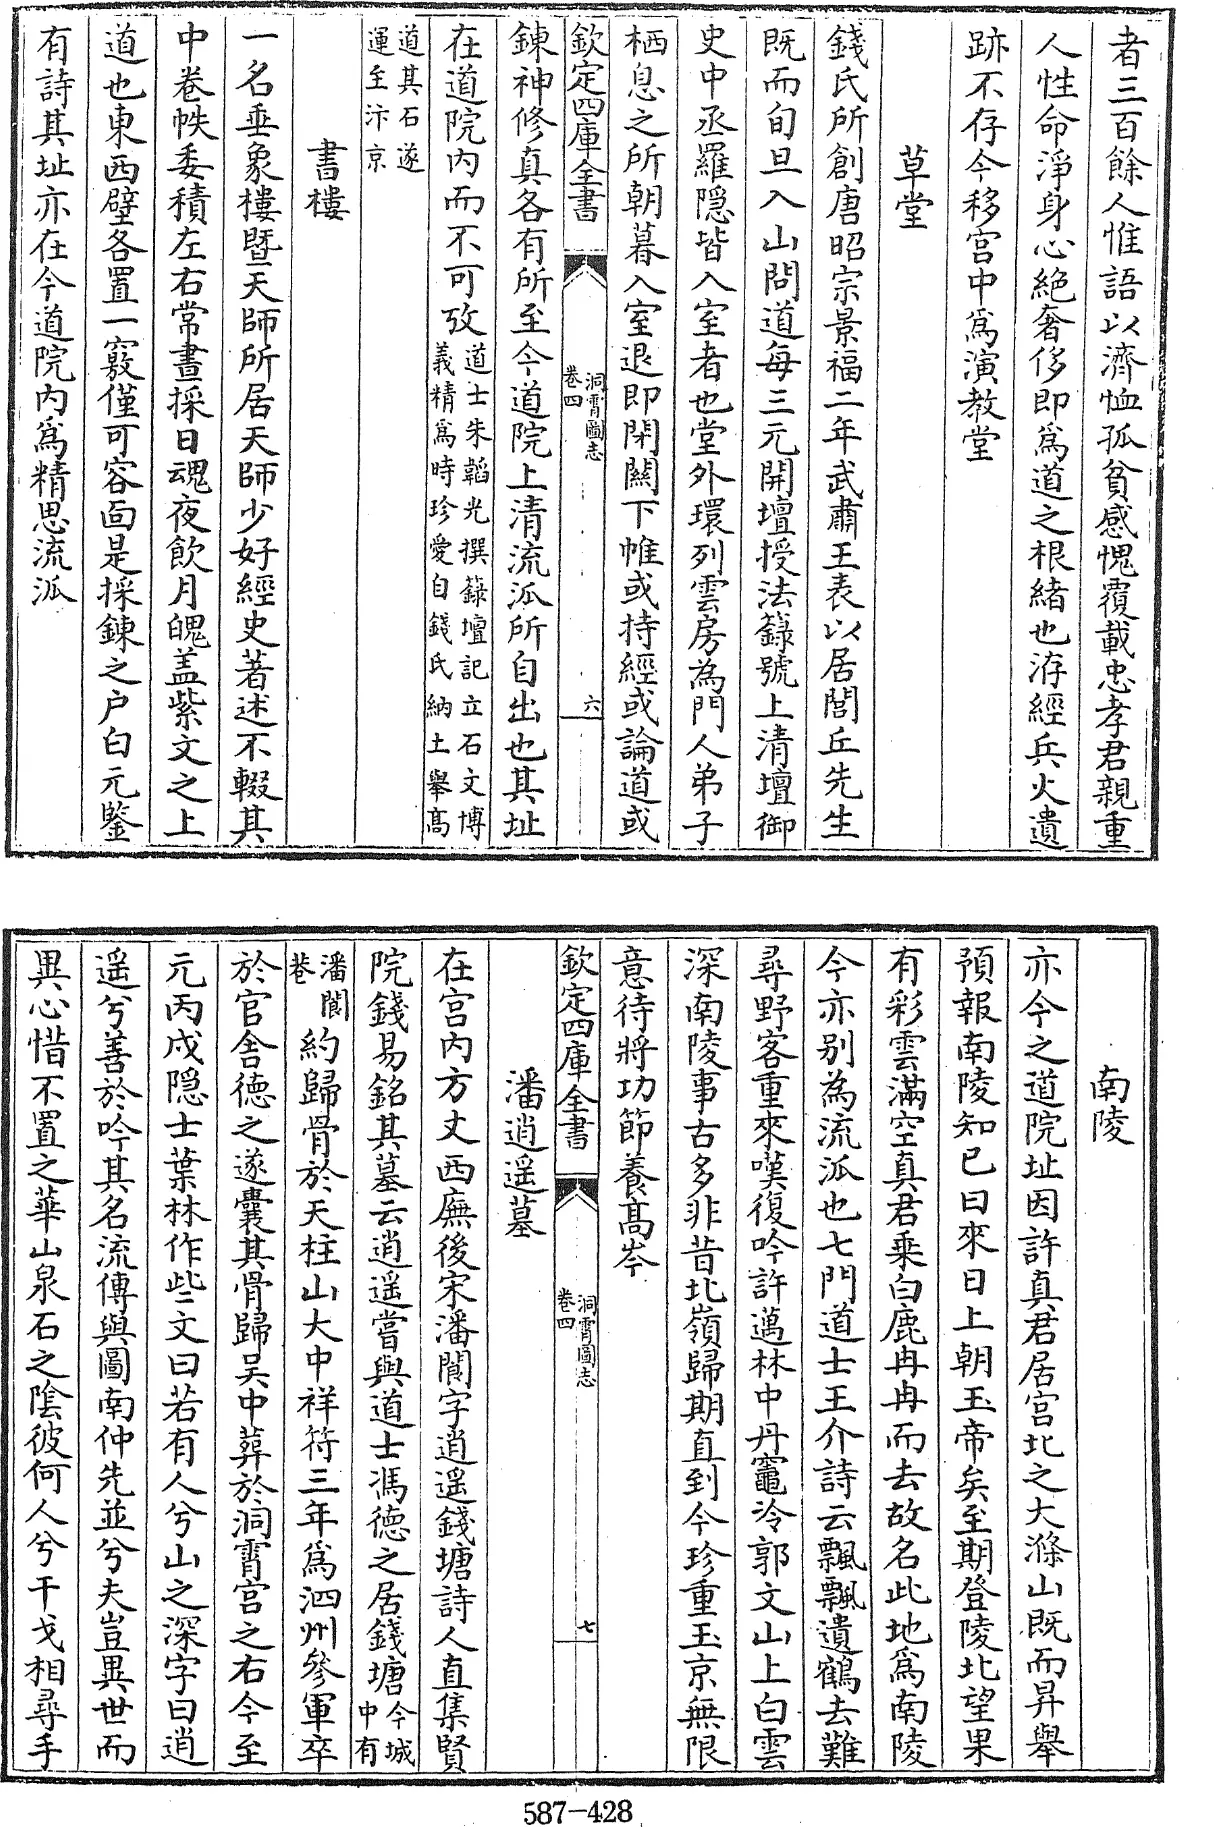 者三百餘人惟語以濟恤孤貧感愧覆載忠孝君親重
人性命淨身心絶奢侈即為道之根緒也洊經兵火遺
跡不存今移宫中為演教堂
草堂
錢氏所創唐昭宗景福二年武肅王表以居閭丘先生
既而旬旦入山問道每三元開壇授法籙號上清壇御
史中丞羅隠皆入室者也堂外環列雲房為門人弟子
栖息之所朝暮入室退即閉闗下帷或持經或論道或
欽定四庫全書
洞霄圖志
卷四
六
錬神修真各有所至今道院上清流派所自出也其址
在道院内而不可攷道士朱韜光撰籙壇記立石文博
義精為時珍愛自錢氏納土舉髙
道其石遂
運至汴京
書樓
一名垂象樓暨天師所居天師少好經史著述不輟其
中卷帙委積左右常晝採日魂夜飲月魄盖紫文之上
道也東西壁各置一竅僅可容面是採錬之户白元鑒
有詩其址亦在今道院内為精思流派
南陵
亦今之道院址因許真君居宫北之大滌山既而昇舉
預報南陵知己曰來日上朝玉帝矣至期登陵北望果
有彩雲滿空真君乗白鹿冉冉而去故名此地為南陵
今亦别為流派也七門道士王介詩云飄飄遺鶴去難
尋野客重來嘆復吟許邁林中丹竈冷郭文山上白雲
深南陵事古多非昔北嶺歸期直到今珍重玉京無限
意待將功節養髙岑
欽定四庫全書
洞霄圖志
卷四
七
潘逍遥墓
在宫内方丈西廡後宋潘閬字逍遥錢塘詩人直集賢
院錢易銘其墓云逍遥嘗與道士馮德之居錢塘今城
中有
潘閬
巷約歸骨於天柱山大中祥符三年為泗州參軍卒
於官舍德之遂囊其骨歸吴中葬於洞霄宫之右今至
元丙戌隠士葉林作些文曰若有人兮山之深字曰逍
遥兮善於吟其名流傳與圖南仲先並兮夫豈異世而
異心惜不置之華山泉石之隂彼何人兮干戈相尋手
587-428